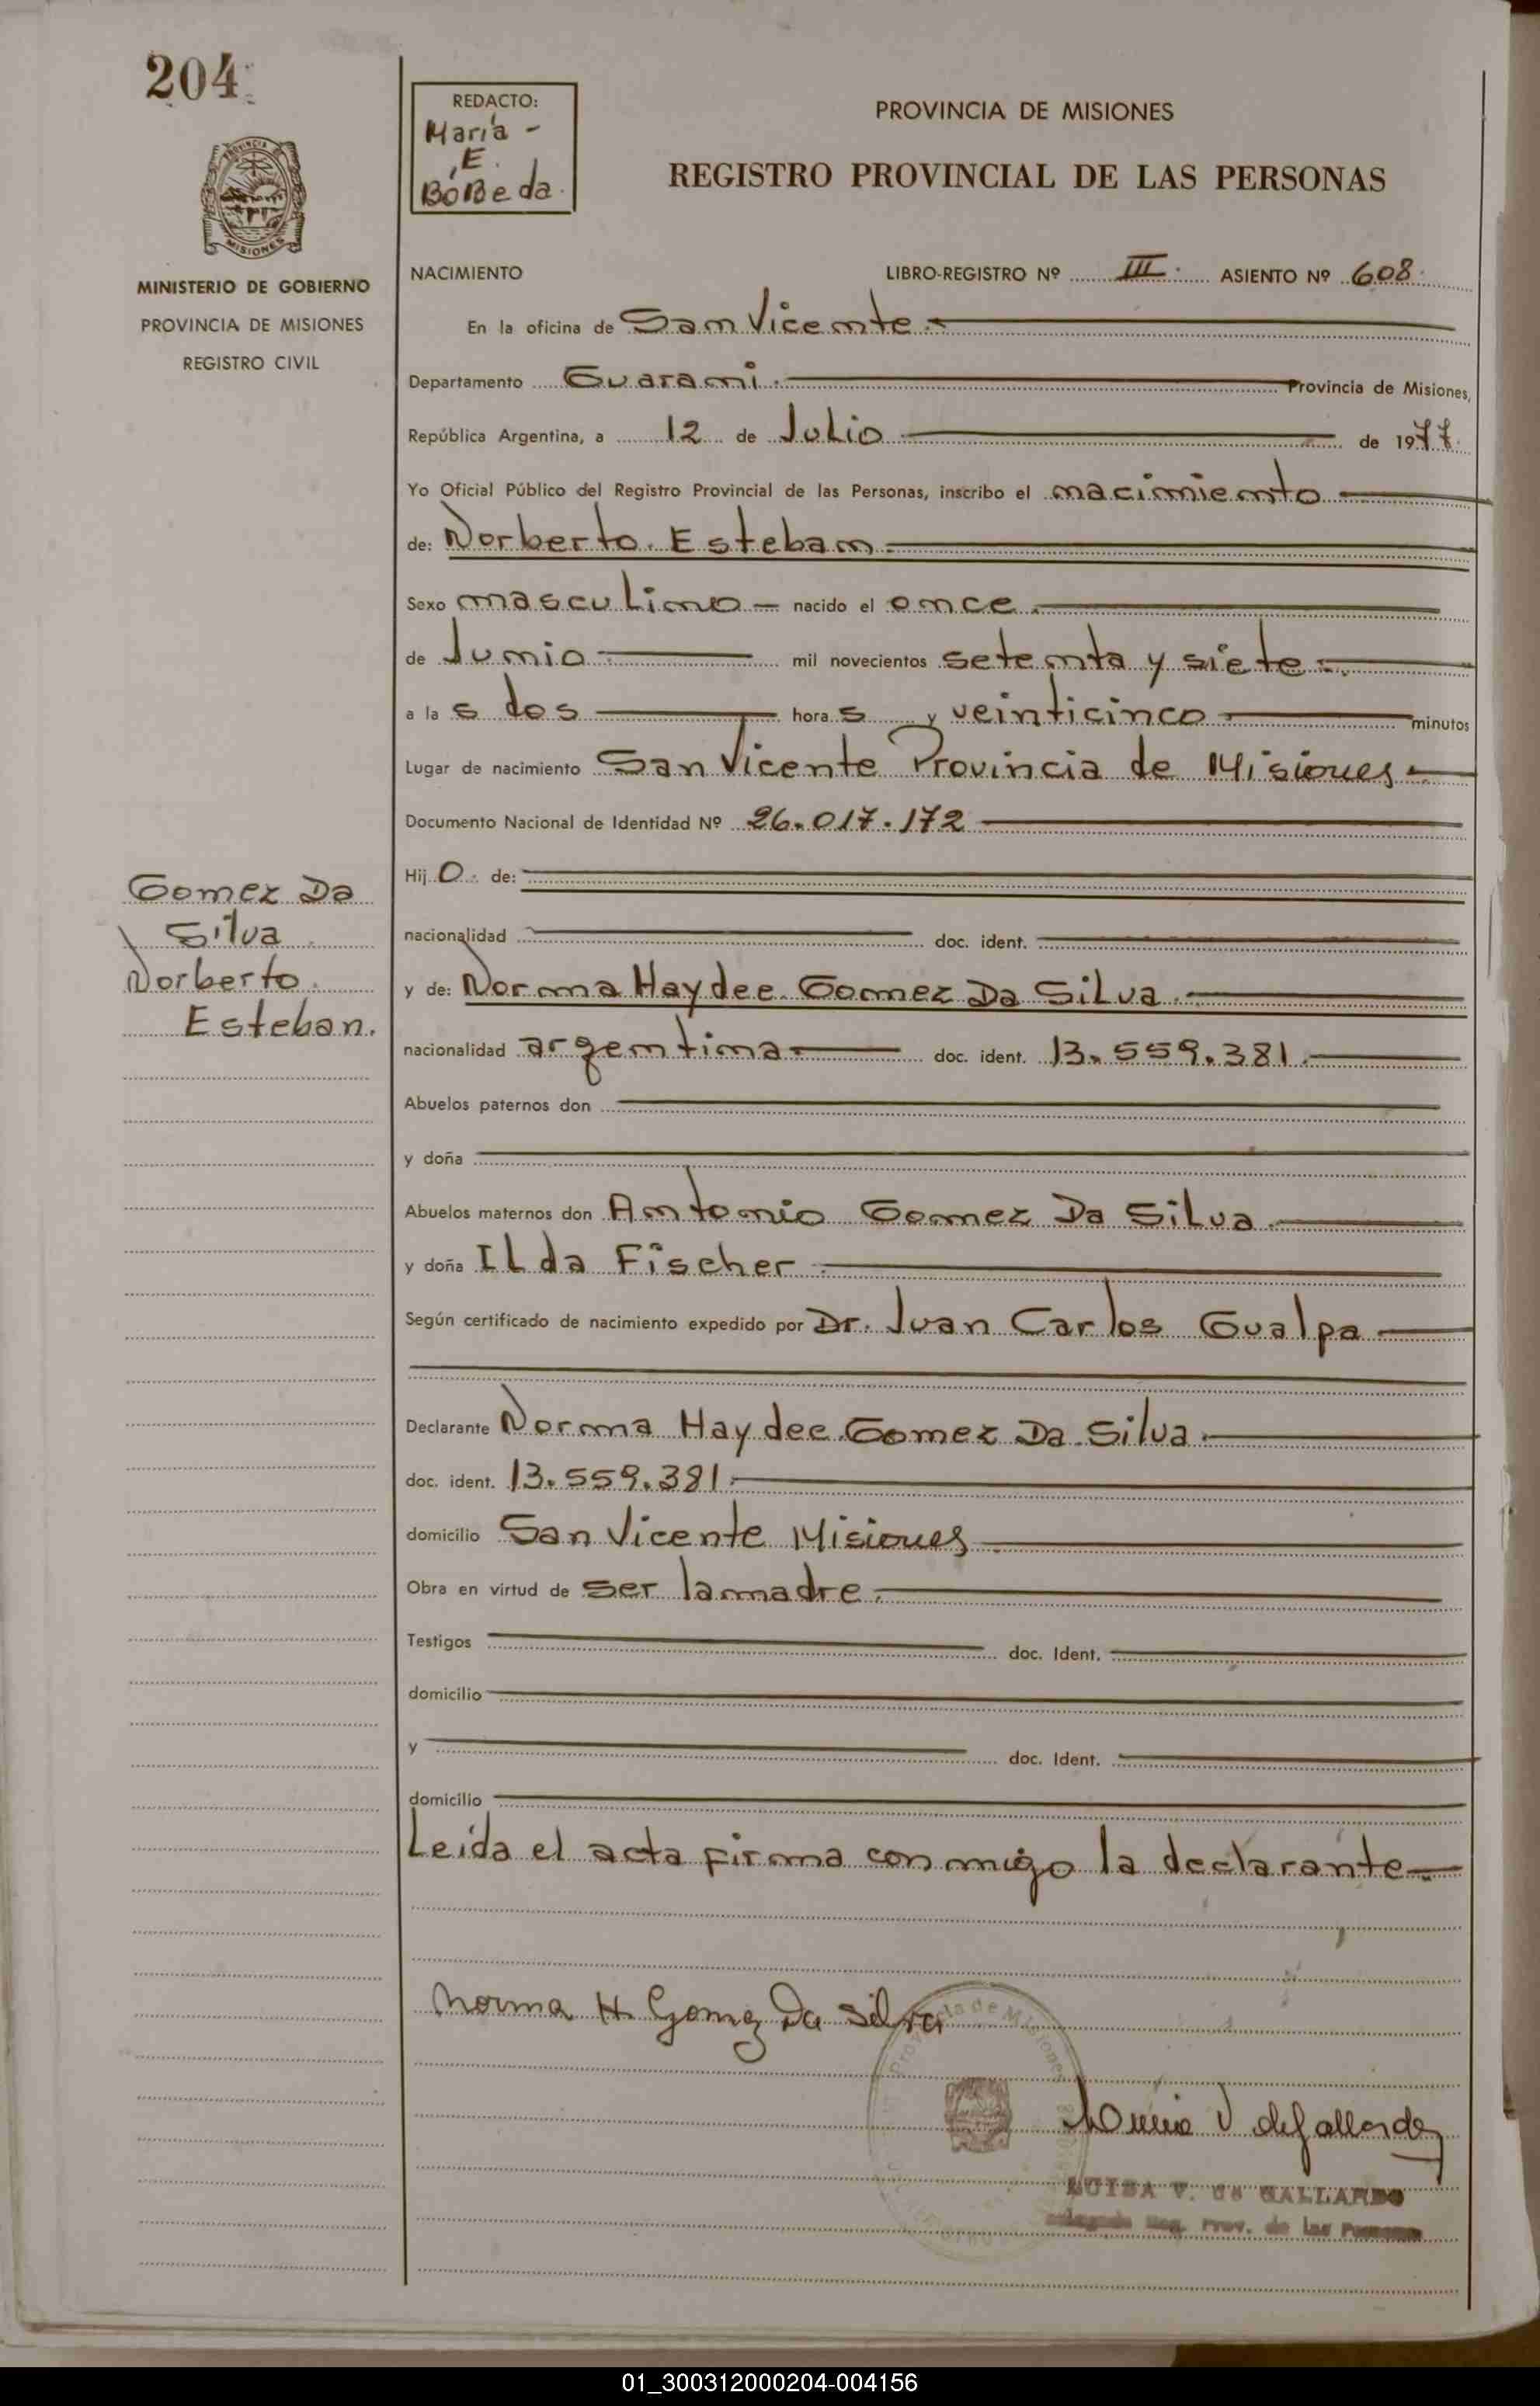 204
REDACTO:
María -
E.
BóBeda.
PROVINCIA DE MISIONES
REGISTRO PROVINCIAL DE LAS PERSONAS
MISIONES
MINISTERIO DE GOBIERNO
PROVINCIA DE MISIONES
REGISTRO CIVIL
NACIMIENTO LIBRO-REGISTRO Nº III. ASIENTO Nº 608.
En la oficina de San Vicente.
Departamento Guarani. Provincia de Misiones,
República Argentina, a 12 de Julio de 1977.
Yo Oficial Público del Registro Provincial de las Personas, inscribo el nacimiento
de: Norberto. Esteban.
Sexo masculino — nacido el once.
de Junio mil novecientos setenta y siete.
a las dos horas y veinticinco minutos
Lugar de nacimiento San Vicente Provincia de Misiones
Documento Nacional de Identidad Nº 26.017.172
Hijo. de:
nacionalidad doc. ident.
y de: Norma Haydee. Gomez Da Silva.
nacionalidad argentina. doc. ident. 13.559.381.
Abuelos paternos don
y doña
Abuelos maternos don Antonio Gomez Da Silva.
y doña ILda Fischer
Según certificado de nacimiento expedido por Dr. Juan Carlos Gualpa
Declarante Norma Haydee. Gomez Da Silva.
doc. ident. 13.559.381.
domicilio San Vicente Misiones
Obra en virtud de ser la madre.
Testigos doc. Ident.
domicilio
y doc. Ident.
domicilio
Leida el acta firma conmigo la declarante
Gomez Da
Silva
Norberto.
Esteban.
Norma H. Gomez Da Silva
Provincia de Misiones
LUISA V. de GALLARDO
Reg. Prov. de las Personas
01_300312000204-004156